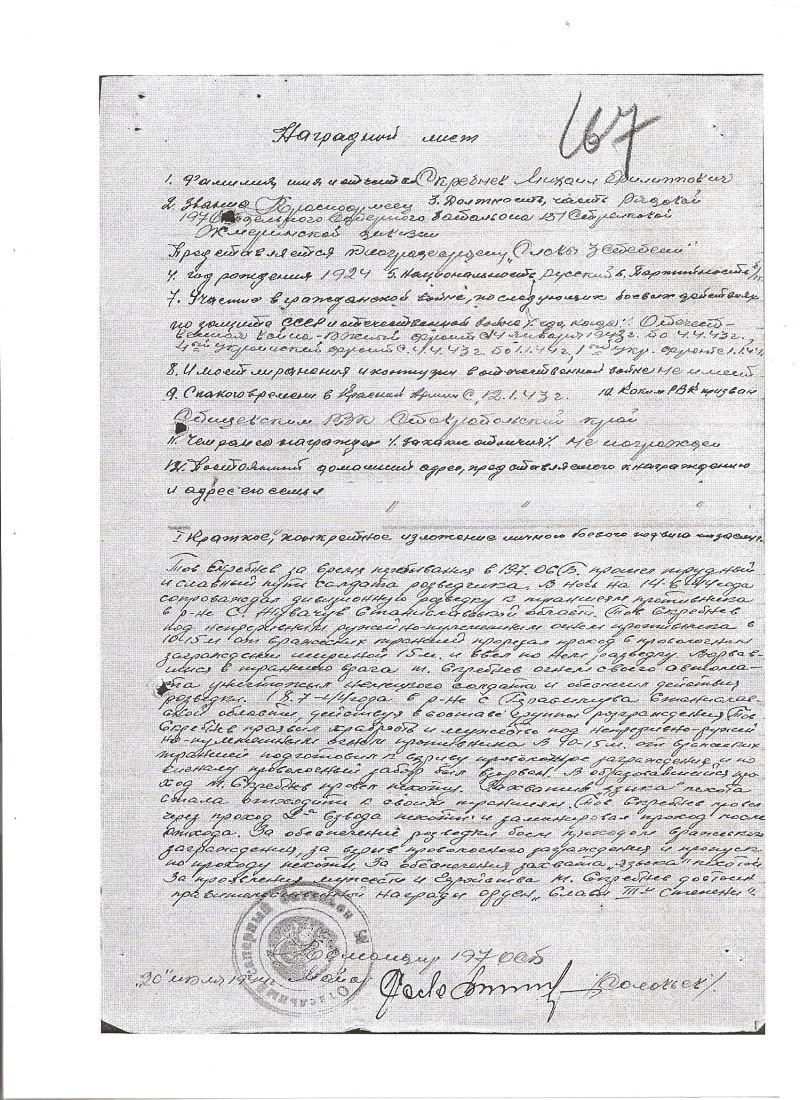 167
Наградной лист
1. Фамилия, имя и отчество Скребнев Михаил Филиппович
2. Звание Красноармеец 3. Должность, часть Рядовой
197 отдельного Саперного батальона 151 Стрелковой
Жмеринской дивизии
Представляется к награде ордену "Славы 3 степени"
4. год рождения 1924 5. Национальность русский 6. Партийность б/п
7. Участие в гражданской войне, последующих боевых действиях
по защите СССР и отечественной войне /где, когда/ Отечест-
венная война Южный фронт с января 1943г. по 4.4.43г.,
4ый Украинский фронт с 4.4.43г. по 1.1.44г., 1ый Укр. фронт с 1.1.44
8. Имеет ли ранения и контузии в отечественной войне не имеет
9. С какого времени в Красной Армии С 12.1.43г. 10. Каким РВК призван
РВК Ставропольский край
11. Чем ранее награжден /за какие отличия/ Не награжден
12. Постоянный домашний адрес, представляемого к награждению
и адрес его семьи
" " "
I Краткое, конкретное изложение личного боевого подвига или заслуг.
Тов Скребнев за время пребывания в 197 ОСБ прошел трудный
и славный путь солдата разведчика. В ночь на 14-6-44 года
сопровождал дивизионную разведку к траншеям противника
в р-не с. Станиславской области. Тов Скребнев
под непрерывным ружейно-пулеметным огнем противника в
10-15 м от вражеских траншей прорезал проход в проволочном
заграждении шириной 15 м. и ввел по нем разведку. Ворвав-
шись в траншею врага т. Скребнев огнем своего автома-
та уничтожил немецкого солдата и обеспечил действия
разведки. 7-44 года в р-не с Станислав-
ской области, действуя в составе группы разграждения Тов
Скребнев проявил храбрость и мужество под непрерывно-ружей
но-пулеметным огнем противника в 10-15 м. от вражеских
траншей подготовил к взрыву проволочное заграждение и по
сигналу проволочный забор был взорван. В образовавшийся про
ход т. Скребнев провел пехоту. Захватив "языка" пехота
стала отходить к своим траншеям. Тов Скребнев провел
через проход 2а взвода пехоты и заминировал проход после
отхода. За обеспечение разведки боем проходом вражеского
заграждения, за взрыв проволочного заграждения и пропуск
по проходу пехоты. За обеспечения захвата "языка" пехотой
За проявления мужества и т. Скребнев достоин
правительственной награды орден "Славы IIIей степени".
Командир 197 ОСБ
"20" июля 1944г. майор /